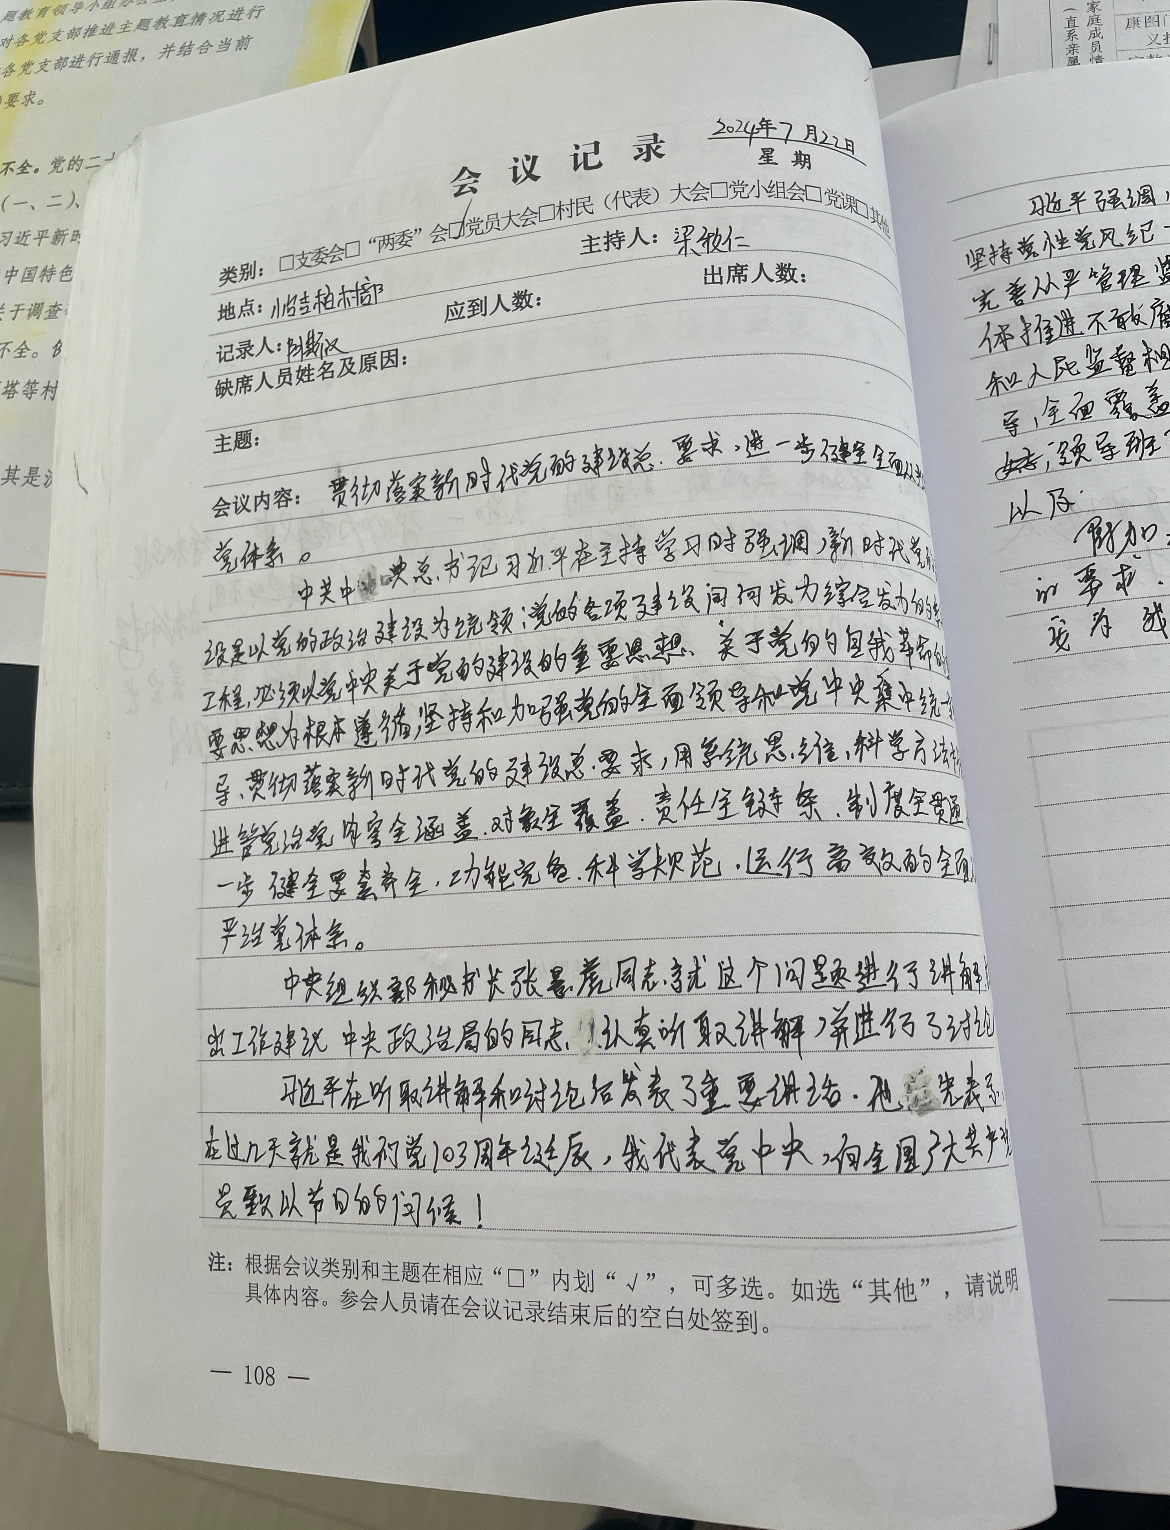 题教育领导小组办公室
对各党支部推进主题教育情况进行
各党支部进行通报，并结合当前
要求。
不全。党的二十
（一、二）、
习近平新时
中国特色
关于调查
不全。
塔等村
其是
家庭成员情
（直系亲属
会议记录
2024年7月22日
星期
类别：□支委会□“两委”会☑党员大会□村民（代表）大会□党小组会□党课□其他
地点： 村部 主持人：梁敏仁
记录人： 应到人数： 出席人数：
缺席人员姓名及原因：
主题：
会议内容：贯彻落实新时代党的建设总要求，进一步健全全面从严
党体系。
中共中 总书记习近平在主持学习时强调，新时代党的
设是以党的政治建设为统领，党的各项建设同向发力综合发力的
工程，必须以党中央关于党的建设的重要思想、关于党的自我革命的
要思想为根本遵循，坚持和加强党的全面领导和党中央集中统一
导、贯彻落实新时代党的建设总要求，用系统思维、科学方法
进管党治党内容全涵盖、对象全覆盖、责任全链条、制度全贯通
一步健全要素齐全、功能完备、科学规范、运行高效的全面
严治党体系。
中央组织部秘书长张景虎同志就这个问题进行讲解
出工作建议 中央政治局的同志 认真听取讲解，并进行了讨论
习近平在听取讲解和讨论后发表了重要讲话。他 先表示
在过几天就是我们党103周年诞辰，我代表党中央，向全国广大共产党
员致以节日的问候！
注：根据会议类别和主题在相应“□”内划“√”，可多选。如选“其他”，请说明
具体内容。参会人员请在会议记录结束后的空白处签到。
— 108 —
习近平强调，
坚持党性党风党纪一
完善从严管理监
体推进不敢腐
和人民监督相
导，全面覆盖
领导班
以及
附加
的要求
我